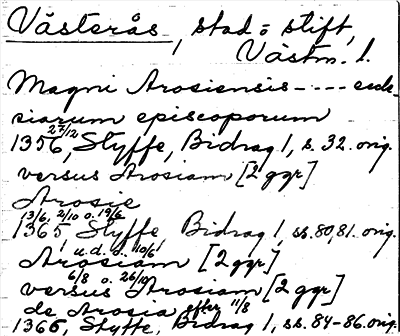 Västerås, stad o stift,
Västm. l.
Magni Arosiensis ---- eccle-
siarum episcoporum
27/12
1356, Styffe, Bidrag 1, s. 32. orig.
versus Arosiam [2 ggr]
Arosie
13/6, 2/10 o. 19/6
1365 Styffe Bidrag 1, ss. 80, 81. orig.
u.d. o. 10/6
Arosiam [2 ggr]
6/8 o. 26/10
versus Arosiam [2 ggr]
de Arosia efter 11/8
1366, Styffe, Bidrag 1, ss. 84-86. orig.